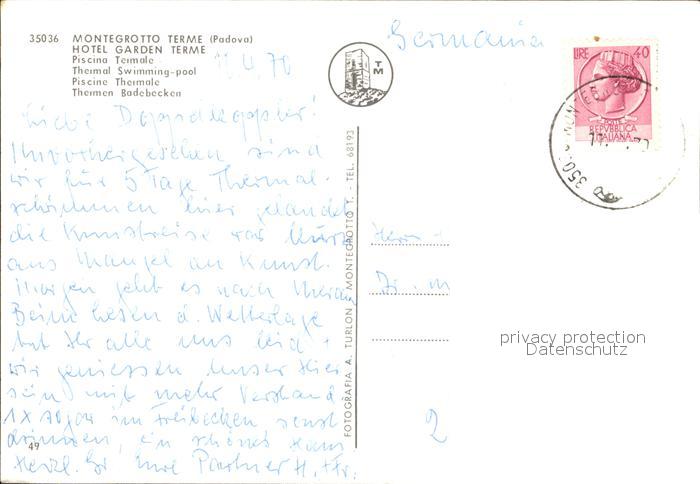 35036 MONTEGROTTO TERME (Padova)
HOTEL GARDEN TERME
Piscina Termale
Thermal Swimming-pool
Piscine Thermale
Thermen Badebecken
TM
Germania
LIRE 40
POSTE
REPVBBLICA
ITALIANA
Liebe Doppelkoppler!
Unvorhergesehen sind
wir für 5 Tage Thermal-
schwimmen hier gelandet
die Kunstreise war kurz
aus Mangel an Kunst.
Morgen geht es nach Meran
Beim Lesen d. Wetterlage
tut Ihr alle uns leid +
wir geniessen unser Hier
sein mit mehr Verstand
1x im Freibecken, sonst
drinnen, ein schönes Haus
Herzl. Gr Eure Partner H. + Fr.
49
FOTOGRAFIA A. TURLON - MONTEGROTTO T. - TEL. 68193
Herrn
2
privacy protection
Datenschutz